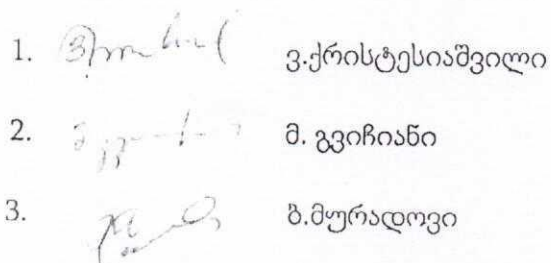 1. ვ.ქრისტესიაშვილი
2. მ. გვიჩიანი
3. ბ.მურადოვი